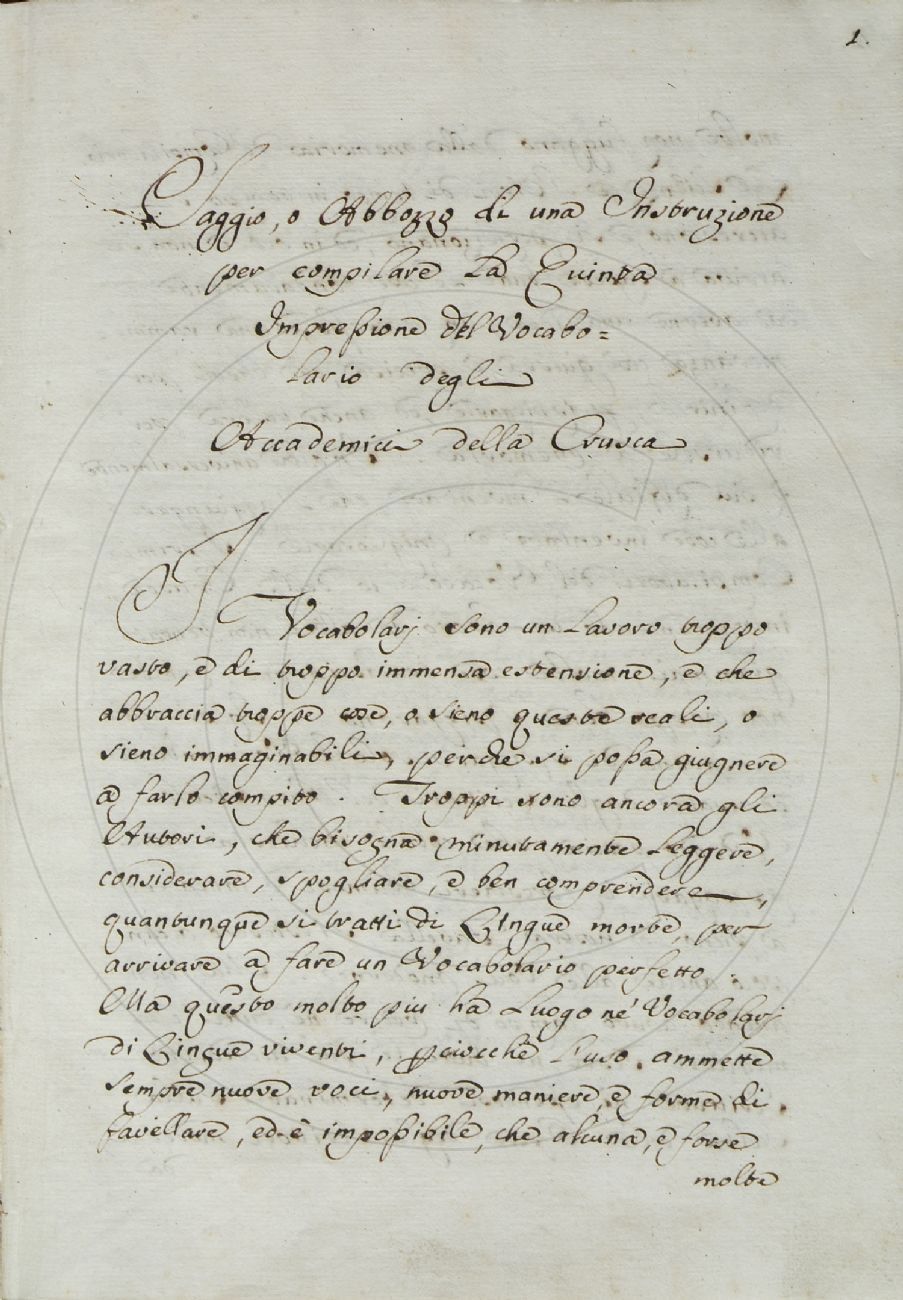 1.
Saggio, o Abbozzo di una Instruzione
per compilare la Quinta
Impressione del Vocabo=
lario degli
Accademici della Crusca.
I Vocabolarj sono un lavoro troppo
vasto, e di troppo immensa estensione, e che
abbraccia troppe cose, o sieno queste reali, o
sieno immaginabili, perche si possa giugnere
a farlo compito. Troppi sono ancora gli
Autori, che bisogna minutamente leggere,
considerare, spogliare, e ben comprendere,
quantunque si tratti di Lingue morte, per
arrivare a fare un Vocabolario perfetto.
Ma questo molto piu ha luogo ne' Vocabolarj
di Lingue viventi, perciocche l'uso ammette
sempre nuove voci, nuove maniere, e forme di
favellare, ed è impossibile, che alcuna, e forse
molte